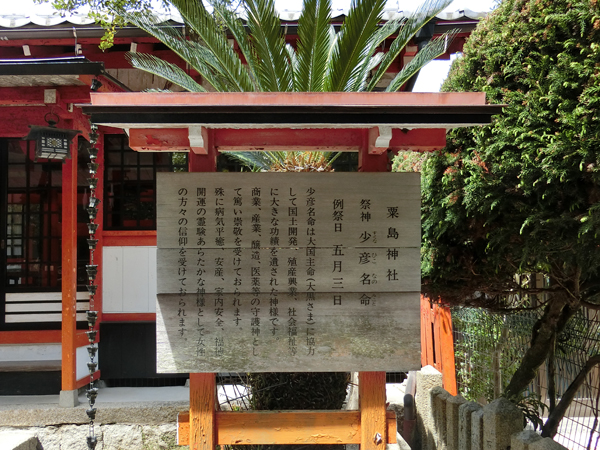 粟島神社
祭神 少彦名命
すくな ひこ なの みこと
例祭日 五月三日
少彦名命は大国主命(大黒さま)に協力
して国土開発、殖産興業、社会福祉等
に大きな功績を遺された神様です。
商業、産業、醸造、医薬等の守護神とし
て篤い崇敬を受けておられます。
殊に病気平癒、安産、室内安全、福祉
開運の霊験あらたかな神様として女性
の方々の信仰を受けておられます。